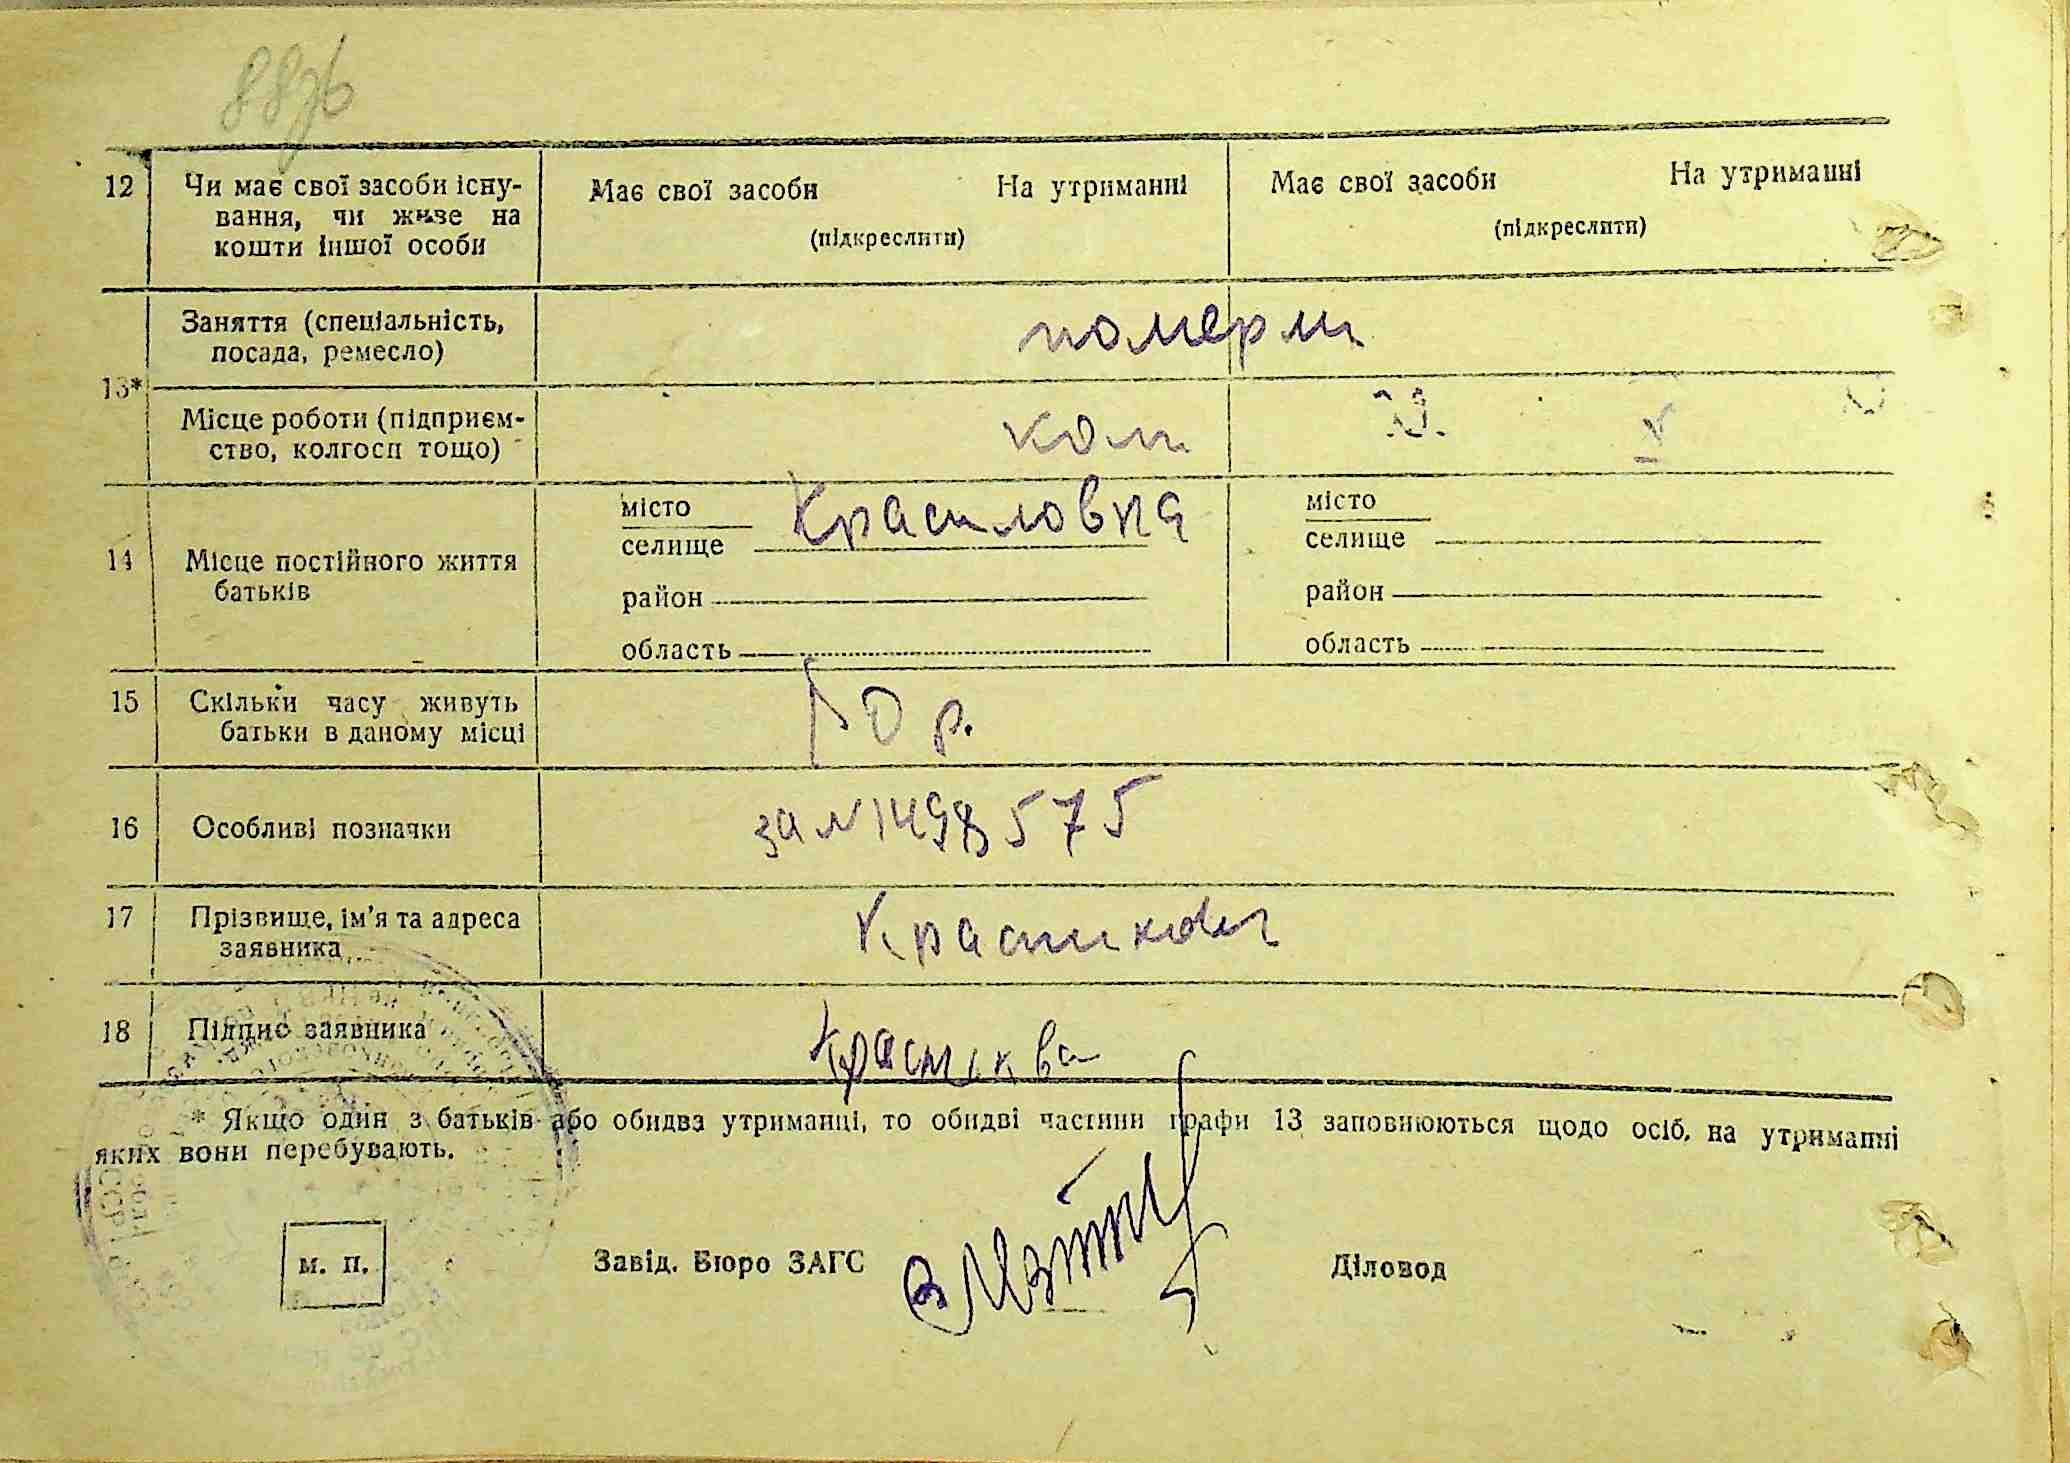 88зв
12 Чи має свої засоби існу-
вання, чи живе на
кошти іншої особи
Має свої засоби На утриманні
(підкреслити)
Має свої засоби На утриманні
(підкреслити)
13*
Заняття (спеціальність,
посада, ремесло)
померли
Місце роботи (підприєм-
ство, колгосп тощо)
14 Місце постійного життя
батьків
місто
селище Красиловка
район
область
місто
селище
район
область
15 Скільки часу живуть
батьки в даному місці
р.
16 Особливі позначки
за № 1498575
17 Прізвище, ім'я та адреса
заявника
18 Підпис заявника
* Якщо один з батьків або обидва утриманці, то обидві частини графи 13 заповнюються щодо осіб, на утриманні
яких вони перебувають.
м. п.
Завід. Бюро ЗАГС
Діловод